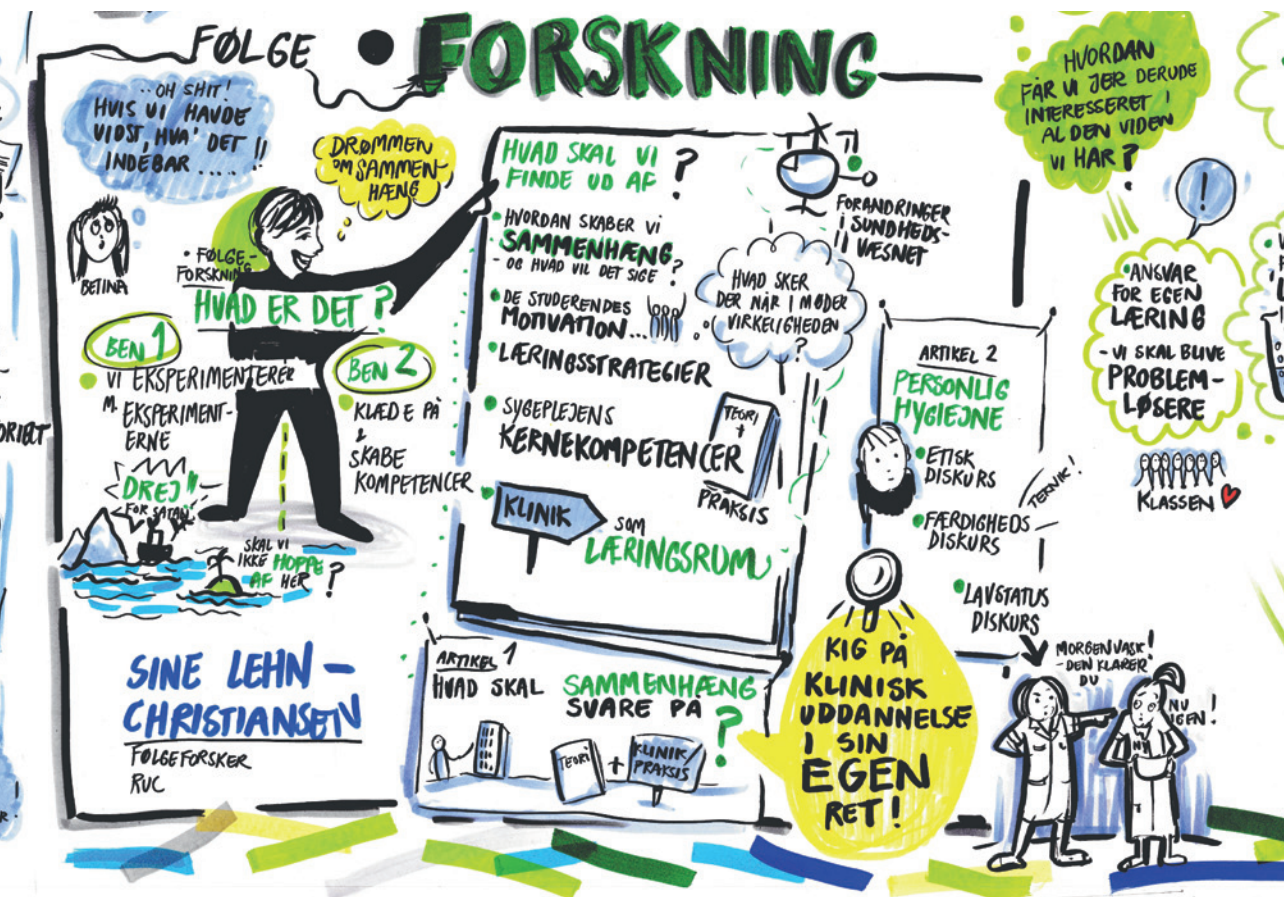 FØLGE
FORSKNING
.. OH SHIT!
HVIS VI HAVDE
VIDST, HVA' DET
INDEBAR .... !!
BETINA
DRØMMEN
OM SAMMEN-
HÆNG
• FØLGE-
FORSKNING
HVAD ER DET?
BEN 1
• VI EKSPERIMENTERER
M. EKSPERIMENT-
ERNE
DREJ!!
FOR SATAN!
SKAL VI
IKKE HOPPE
AF HER ?
BEN 2
• KLÆDE PÅ
&
SKABE
KOMPETENCER
SINE LEHN –
CHRISTIANSEN
FØLGEFORSKER
RUC
HVAD SKAL VI
FINDE UD AF ?
• HVORDAN SKABER VI
SAMMENHÆNG
- OG HVAD VIL DET SIGE ?
• DE STUDERENDES
MOTIVATION...
• LÆRINGSSTRATEGIER
• SYGEPLEJENS
KERNEKOMPETENCER
TEORI
+
PRAKSIS
• KLINIK
SOM
LÆRINGSRUM
HVAD SKER
DER NÅR I MØDER
VIRKELIGHEDEN
?
FORANDRINGER
I SUNDHEDS-
VÆSNET
ARTIKEL 1
HVAD SKAL SAMMENHÆNG
SVARE PÅ ?
TEORI + KLINIK/
PRAKSIS
ARTIKEL 2
PERSONLIG
HYGIEJNE
• ETISK
DISKURS
• FÆRDIGHEDS –
DISKURS
TEKNIK!
• LAVSTATUS
DISKURS
KIG PÅ
KLINISK
UDDANNELSE
I SIN
EGEN
RET!
MORGENVASK!
- DEN KLARER
DU
NU
IGEN!
NY
HVORDAN
FÅR VI JER DERUDE
INTERESSERET I
AL DEN VIDEN
VI HAR ?
!
• ANSVAR
FOR EGEN
LÆRING
- VI SKAL BLIVE
PROBLEM-
LØSERE
KLASSEN